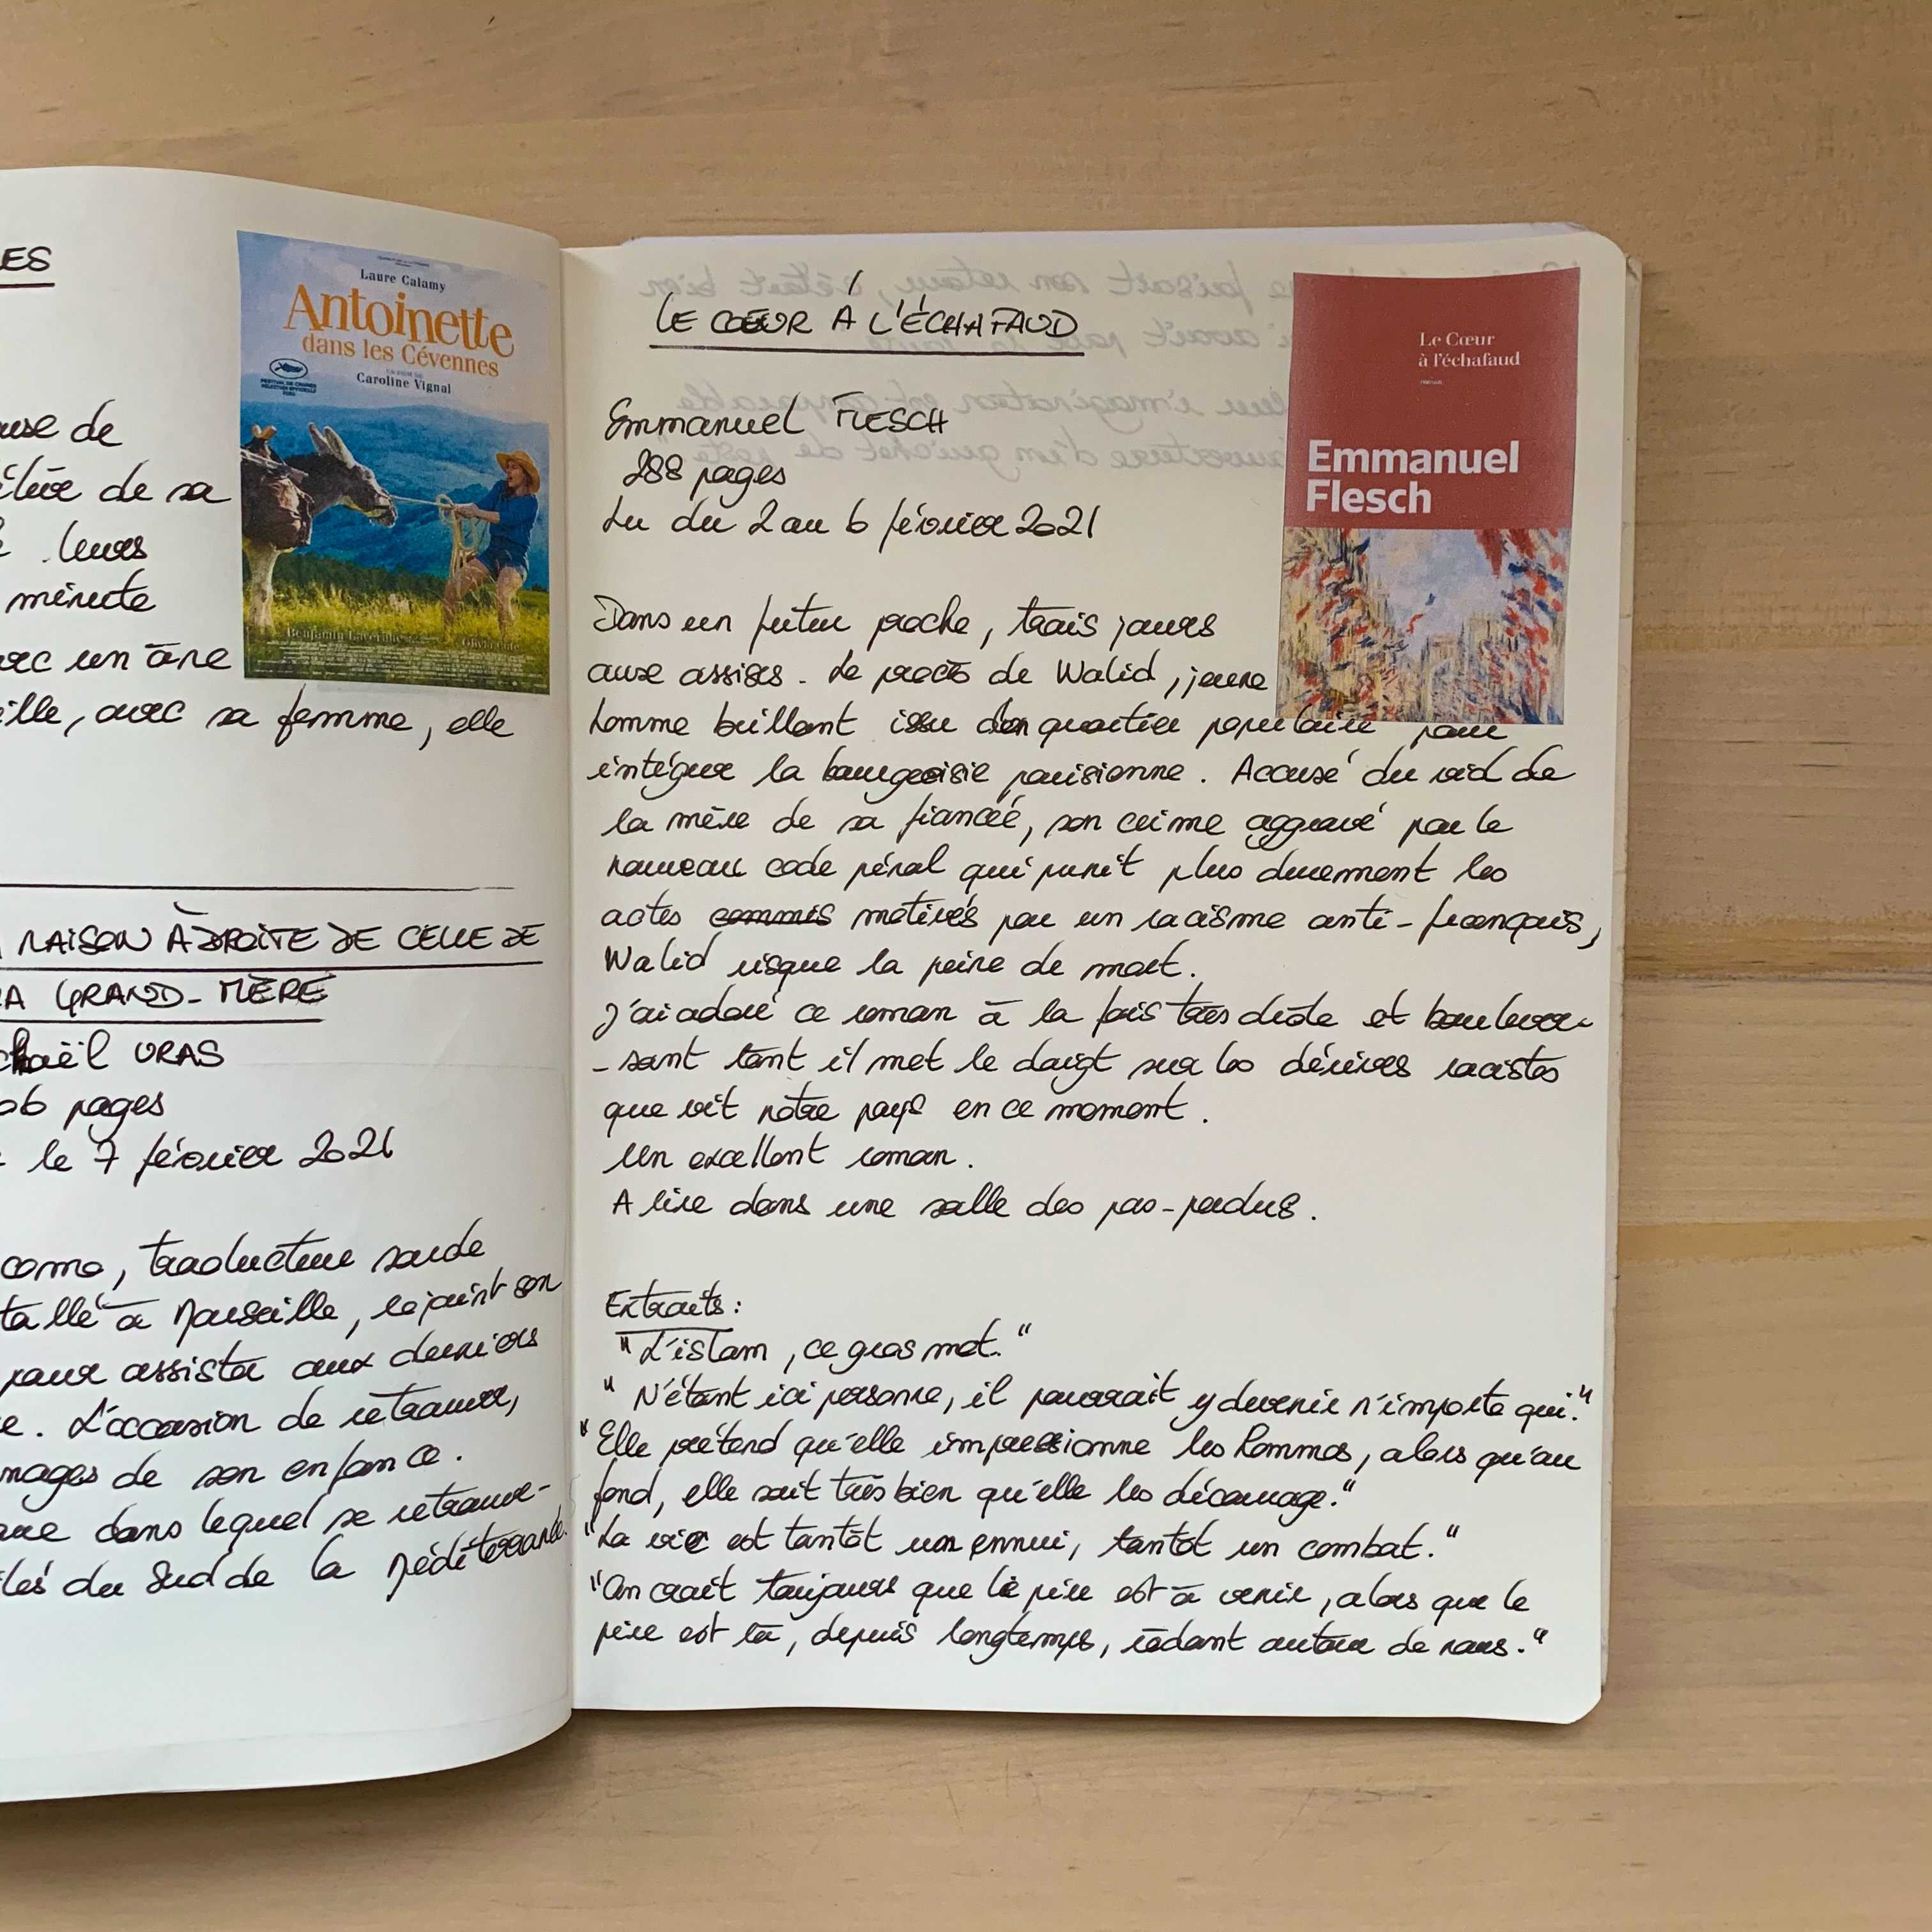 LES
Laure Calamy
Antoinette
dans les Cévennes
FESTIVAL DE CANNES
UN FILM DE
Caroline Vignal
Benjamin Lavernhe
Olivia Côte
de
élève de sa
leurs
minute
avec un âne
, avec sa femme, elle
MAISON À DROITE DE CELLE DE
GRAND-MÈRE
URAS
pages
le 7 février 2021
, traducteur sarde
à Marseille, rejoint son
pour assister aux derniers
. L'occasion de retrouver,
de son enfance.
dans lequel se retrouve-
du Sud de la Méditerranée.
LE CŒUR À L'ÉCHAFAUD
Emmanuel FLESCH
288 pages
Lu du 2 au 6 février 2021
Le Cœur
à l'échafaud
Emmanuel
Flesch
Dans un futur proche, trois jours
aux assises. Le procès de Walid, jeune
homme brillant issu d'un quartier populaire pour
intégrer la bourgeoisie parisienne. Accusé du viol de
la mère de sa fiancée, son crime aggravé par le
nouveau code pénal qui punit plus durement les
actes commis motivés par un racisme anti-français,
Walid risque la peine de mort.
J'ai adoré ce roman à la fois très drôle et boulever-
-sant tant il met le doigt sur les dérives racistes
que vit notre pays en ce moment.
Un excellent roman.
A lire dans une salle des pas-perdus.
Extraits :
"L'islam, ce gros mot."
"N'étant ici personne, il pourrait y devenir n'importe qui."
"Elle prétend qu'elle impressionne les hommes, alors qu'au
fond, elle sait très bien qu'elle les décourage."
"La vie est tantôt un ennui, tantôt un combat."
"On croit toujours que le pire est à venir, alors que le
pire est là, depuis longtemps, rôdant autour de nous."